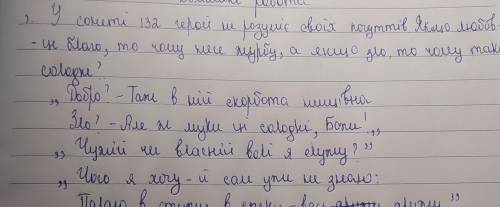 Домашня робота
, У сонеті 132 герой не розуміє своїх почуттів Якщо любов-
-це благо, то чому несе журбу, а якщо зло, то чому така
солодке?
„ Добро? - Та ж в ній скорбота нищівна
Зло? - Але ж муки ці солодкі, Боже! „
„ Чужій чи власній волі я служу? "
„ Чого я хочу - й сам уже не знаю:
в - весь